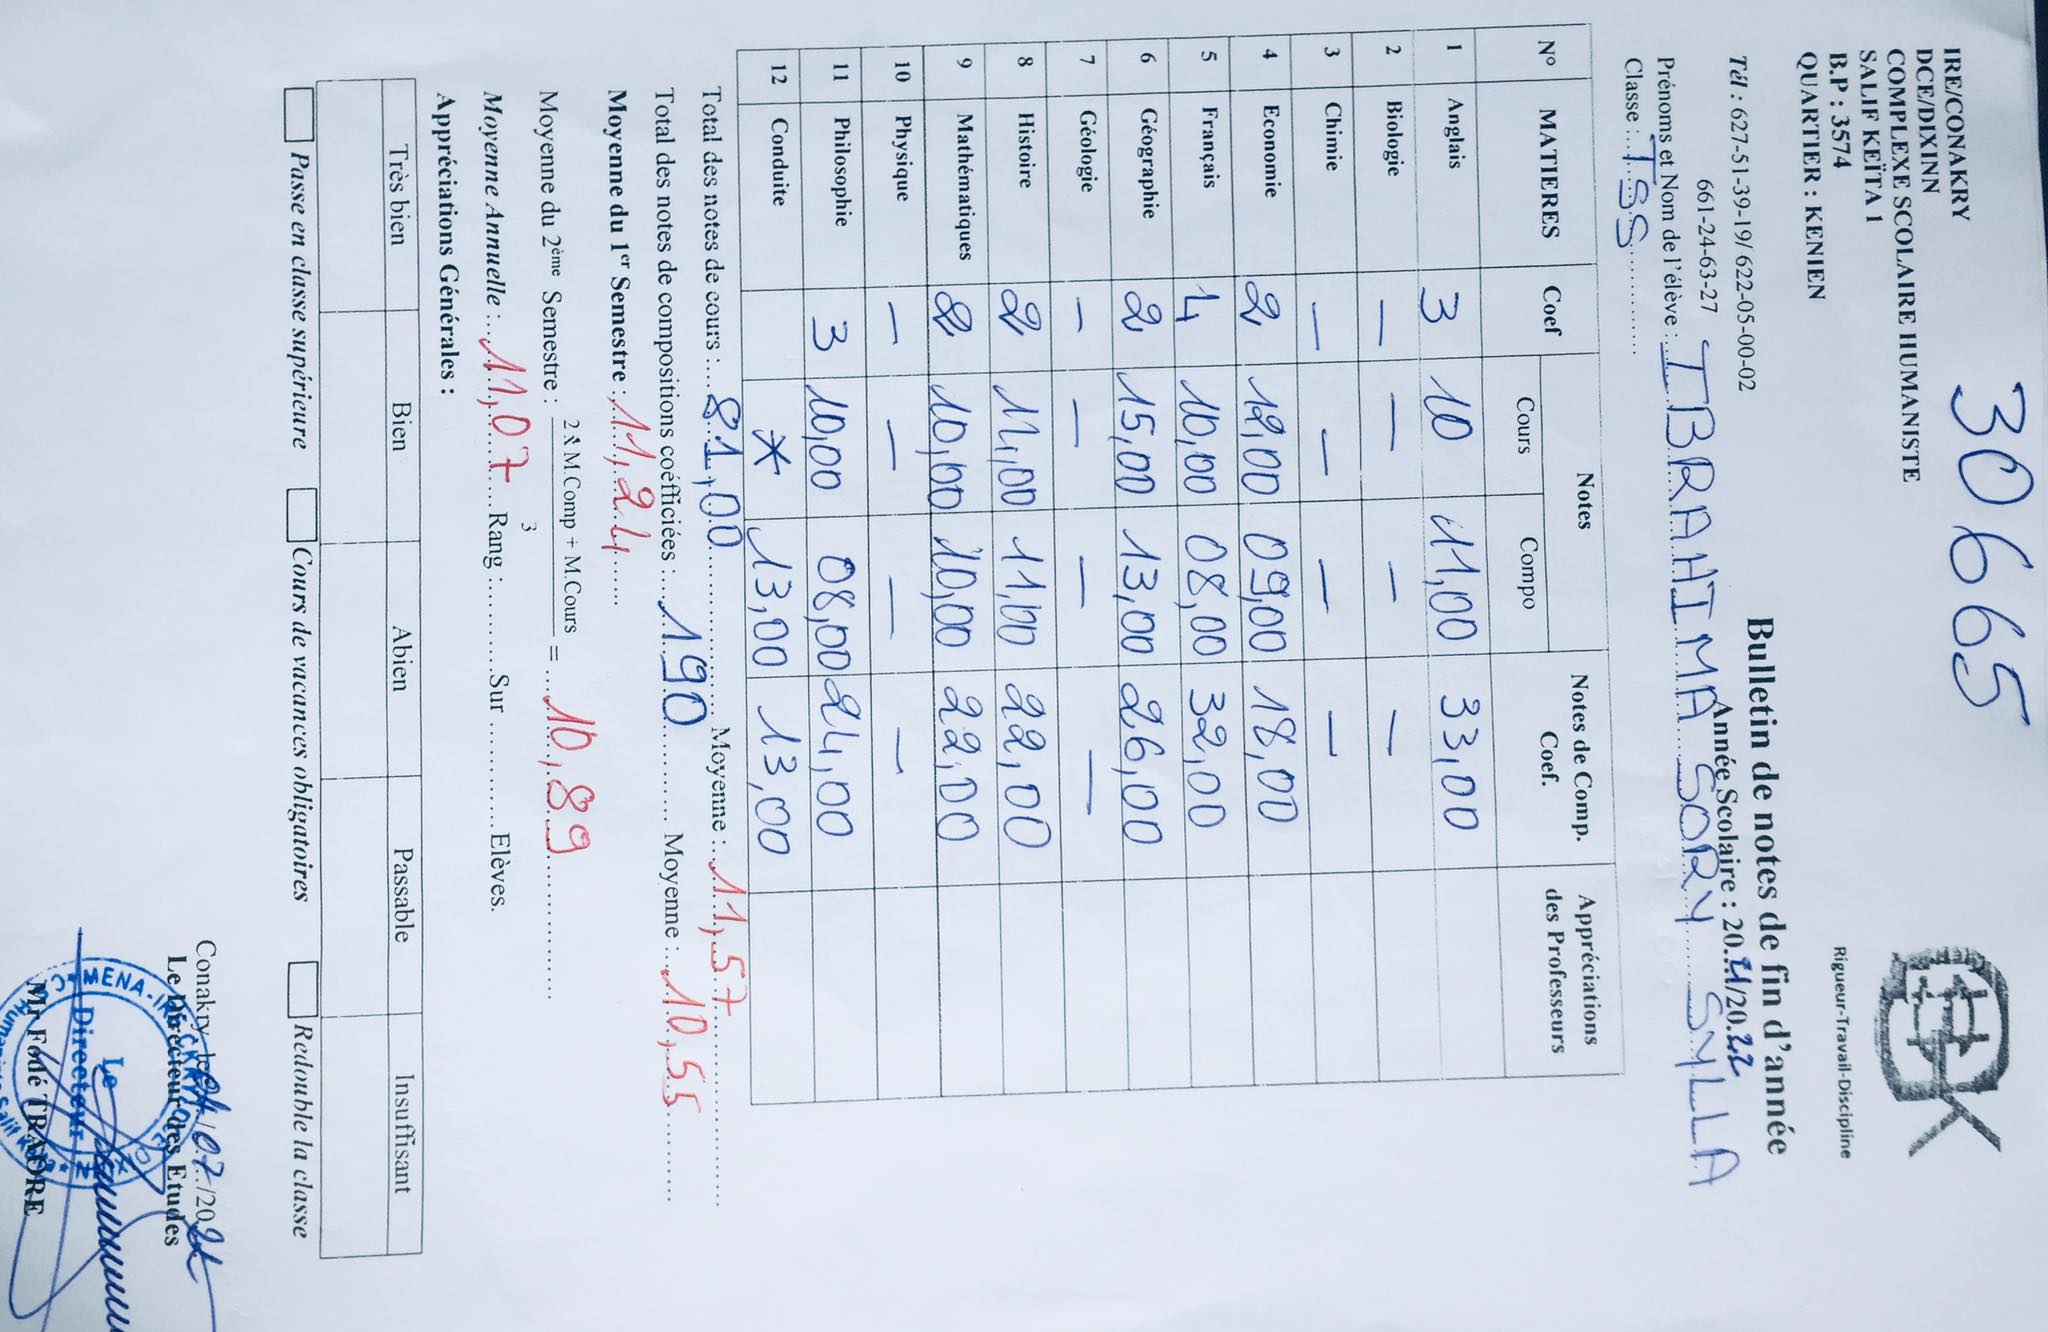 30665
IRE/CONAKRY
DCE/DIXINN
COMPLEXE SCOLAIRE HUMANISTE
SALIF KEÏTA 1
B.P : 3574
QUARTIER : KENIEN
Rigueur-Travail-Discipline
Bulletin de notes de fin d'année
Tél : 627-51-39-19/ 622-05-00-02
661-24-63-27
Année Scolaire : 2021/2022
Prénoms et Nom de l'élève : IBRAHIMA SORY SYLLA
Classe : TSS
N° MATIERES Coef Notes Notes de Comp. Coef. Appréciations des Professeurs
Cours Compo
1 Anglais 3 10 11,00 33,00
2 Biologie — — — —
3 Chimie — — — —
4 Economie 2 12,00 09,00 18,00
5 Français 4 10,00 08,00 32,00
6 Géographie 2 15,00 13,00 26,00
7 Géologie — — — —
8 Histoire 2 11,00 11,00 22,00
9 Mathématiques 2 10,00 10,00 22,00
10 Physique — — — —
11 Philosophie 3 10,00 08,00 24,00
12 Conduite * 13,00 13,00
Total des notes de cours : 81,00 Moyenne : 11,57
Total des notes de compositions coéfficiées : 190 Moyenne : 10,55
Moyenne du 1er Semestre : 11,24
Moyenne du 2ème Semestre : 2 x M.Comp + M.Cours / 3 = 10,89
Moyenne Annuelle : 11,07 Rang : Sur Elèves.
Appréciations Générales :
Très bien Bien Abien Passable Insuffisant
Passe en classe supérieure Cours de vacances obligatoires Redouble la classe
Conakry, le 07/20
Le Directeur des Etudes
MENA-IRE
Le
Directeur
Mr Fodé TRAORE